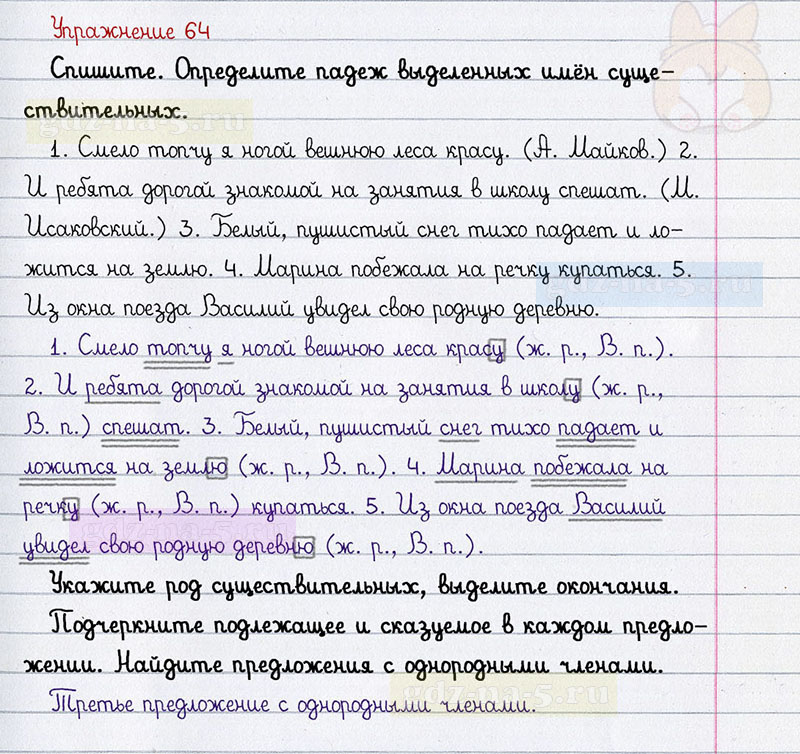 Упражнение 64
Спишите. Определите падеж выделенных имён суще-
ствительных.
1. Смело топчу я ногой вешнюю леса красу. (А. Майков.) 2.
И ребята дорогой знакомой на занятия в школу спешат. (М.
Исаковский.) 3. Белый, пушистый снег тихо падает и ло-
жится на землю. 4. Марина побежала на речку купаться. 5.
Из окна поезда Василий увидел свою родную деревню.
1. Смело топчу я ногой вешнюю леса красу (ж. р., В. п.).
2. И ребята дорогой знакомой на занятия в школу (ж. р.,
В. п.) спешат. 3. Белый, пушистый снег тихо падает и
ложится на землю (ж. р., В. п.). 4. Марина побежала на
речку (ж. р., В. п.) купаться. 5. Из окна поезда Василий
увидел свою родную деревню (ж. р., В. п.).
Укажите род существительных, выделите окончания.
Подчеркните подлежащее и сказуемое в каждом предло-
жении. Найдите предложения с однородными членами.
Третье предложение с однородными членами.
gdz-na-5.ru
gdz-na-5.ru
gdz-na-5.ru
gdz-na-5.ru